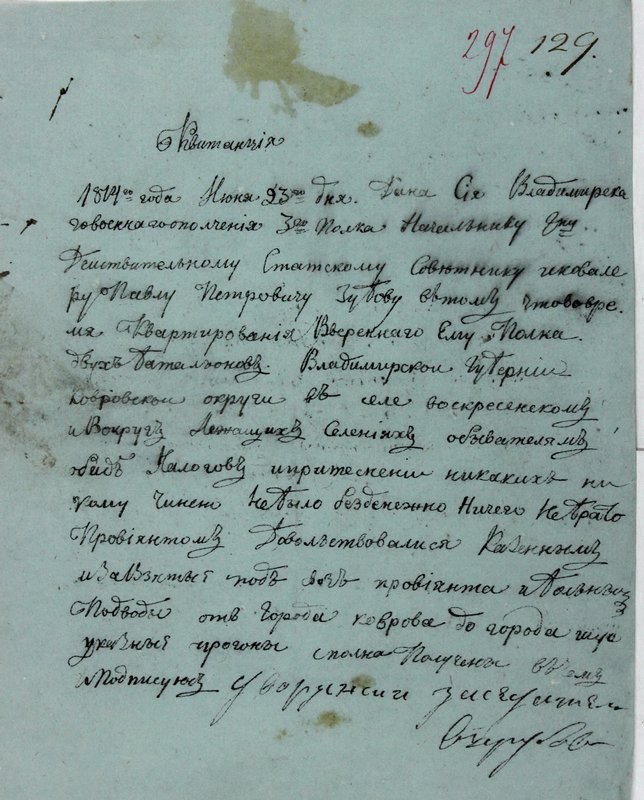 297 129.
Квитанція
1814го года Июня 23го дня. Дана Сія Владимирска
говоеннагоополченія 3го Полка Начальнику Гну
Действительному Статскому Советнику икавале
ру Павлу Петровичу Зубову вътомъ чтововре.
мя Квартированія Ввереннаго Ему Полка.
двухъ баталъоновъ. Владимирской Губерніи
ковровской округи въ селе воскресенскому
иВокругъ Лежащихъ Селеніяхъ обывателямъ
обидъ Налоговъ ипритесненіи никакихъ ни
кому чинено Небыло безденежно Ничего Небрато
Провіянтомъ Давольствовалися Казеннымъ
изавзятыї подъ возъ провіянта иБольныхъ
Подводы отъ города коврова до города шуи
указныї прогоны сполна Получены въчемъ
иПодписуюсь заседатель